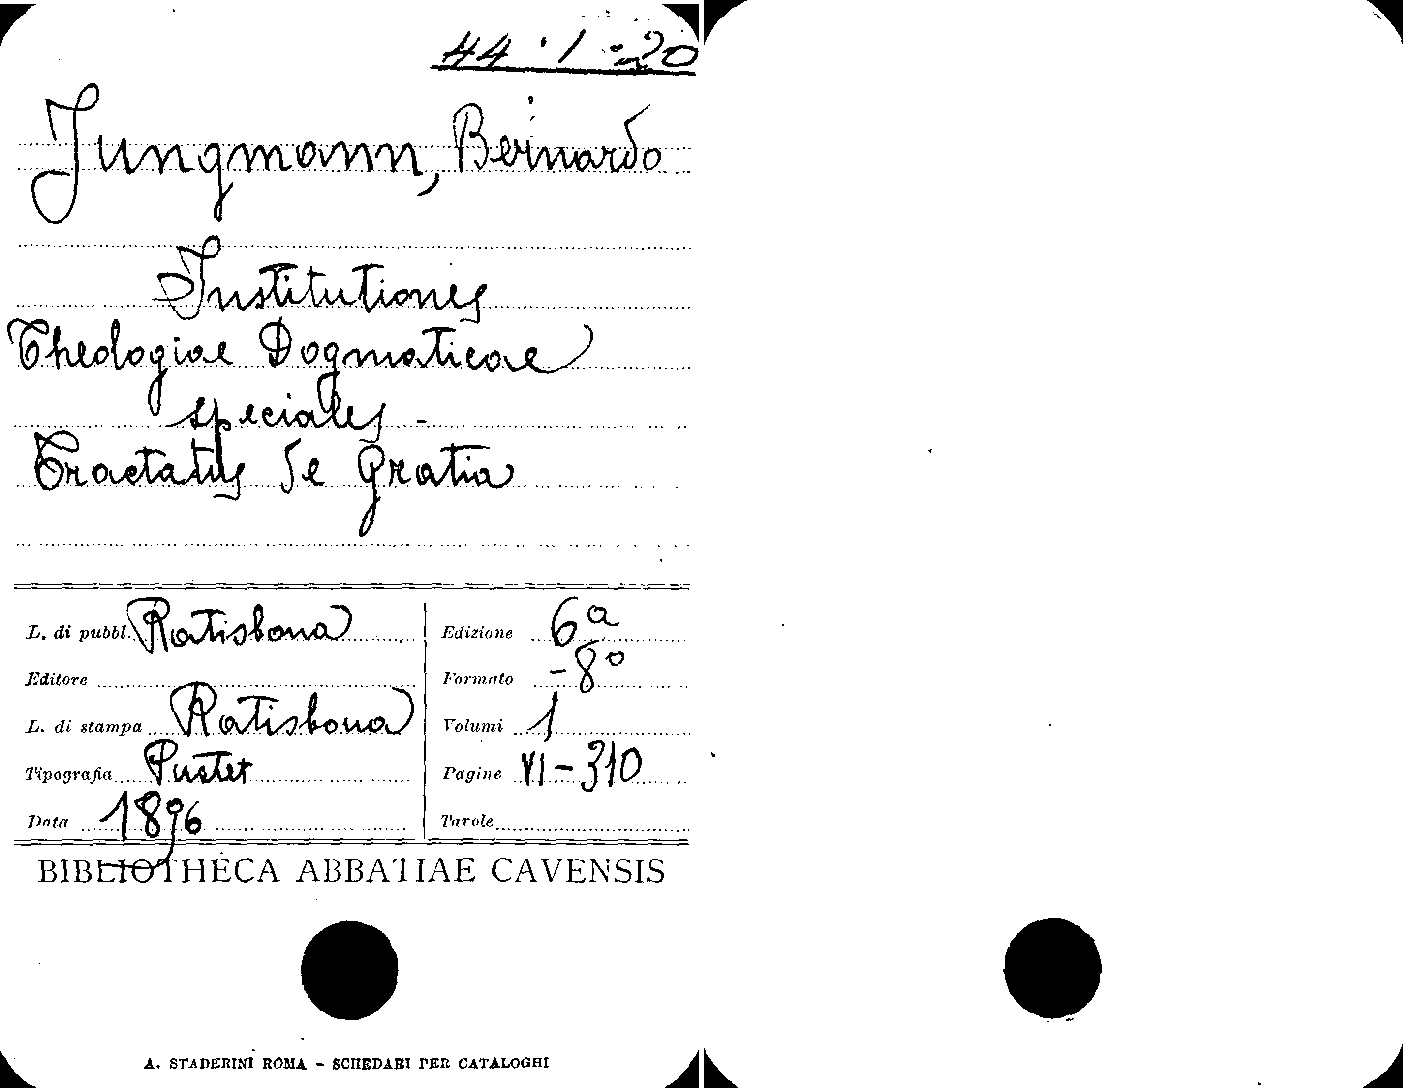 44 · 1 · 20
Jungmann, Bernardo
Institutiones
Theologiae Dogmaticae
speciales -
Tractatus de gratia
L. di pubbl. Ratisbona
Editore
L. di stampa Ratisbona
Tipografia Pustet
Data 1896
Edizione 6a
Formato - 8°
Volumi 1
Pagine VI - 310
Tavole
BIBLIOTHECA ABBATIAE CAVENSIS
A. STADERINI ROMA - SCHEDARI PER CATALOGHI